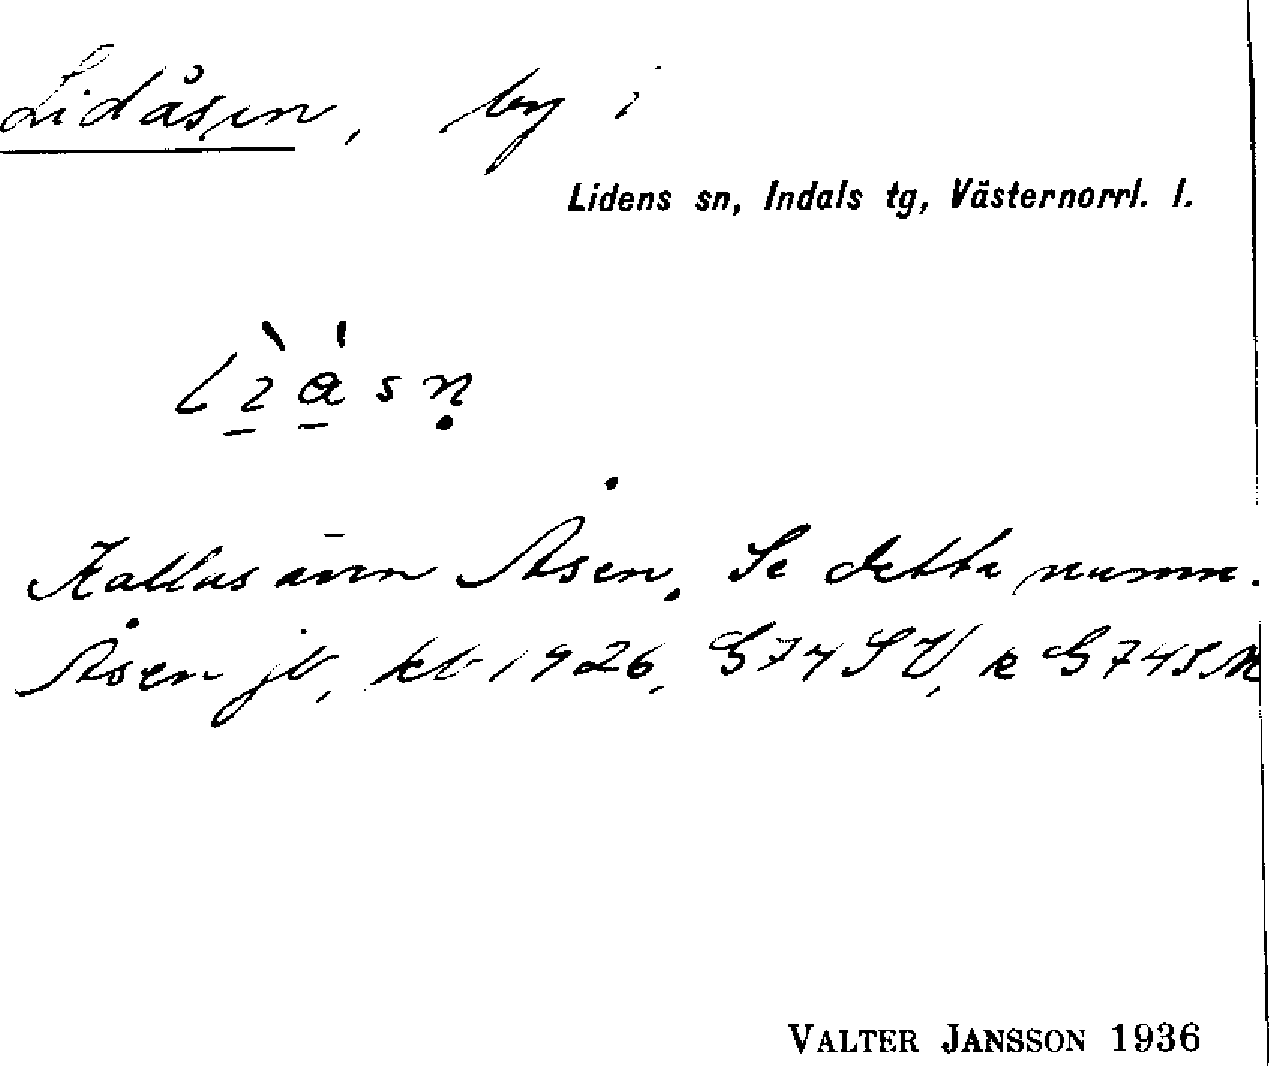 Lidåsen, by i
Lidens sn, Indals tg, Västernorrl. l.
Kallas även Åsen. Se detta namn.
Åsen jb, kb 1926, G74SV, k G74SM
VALTER JANSSON 1936